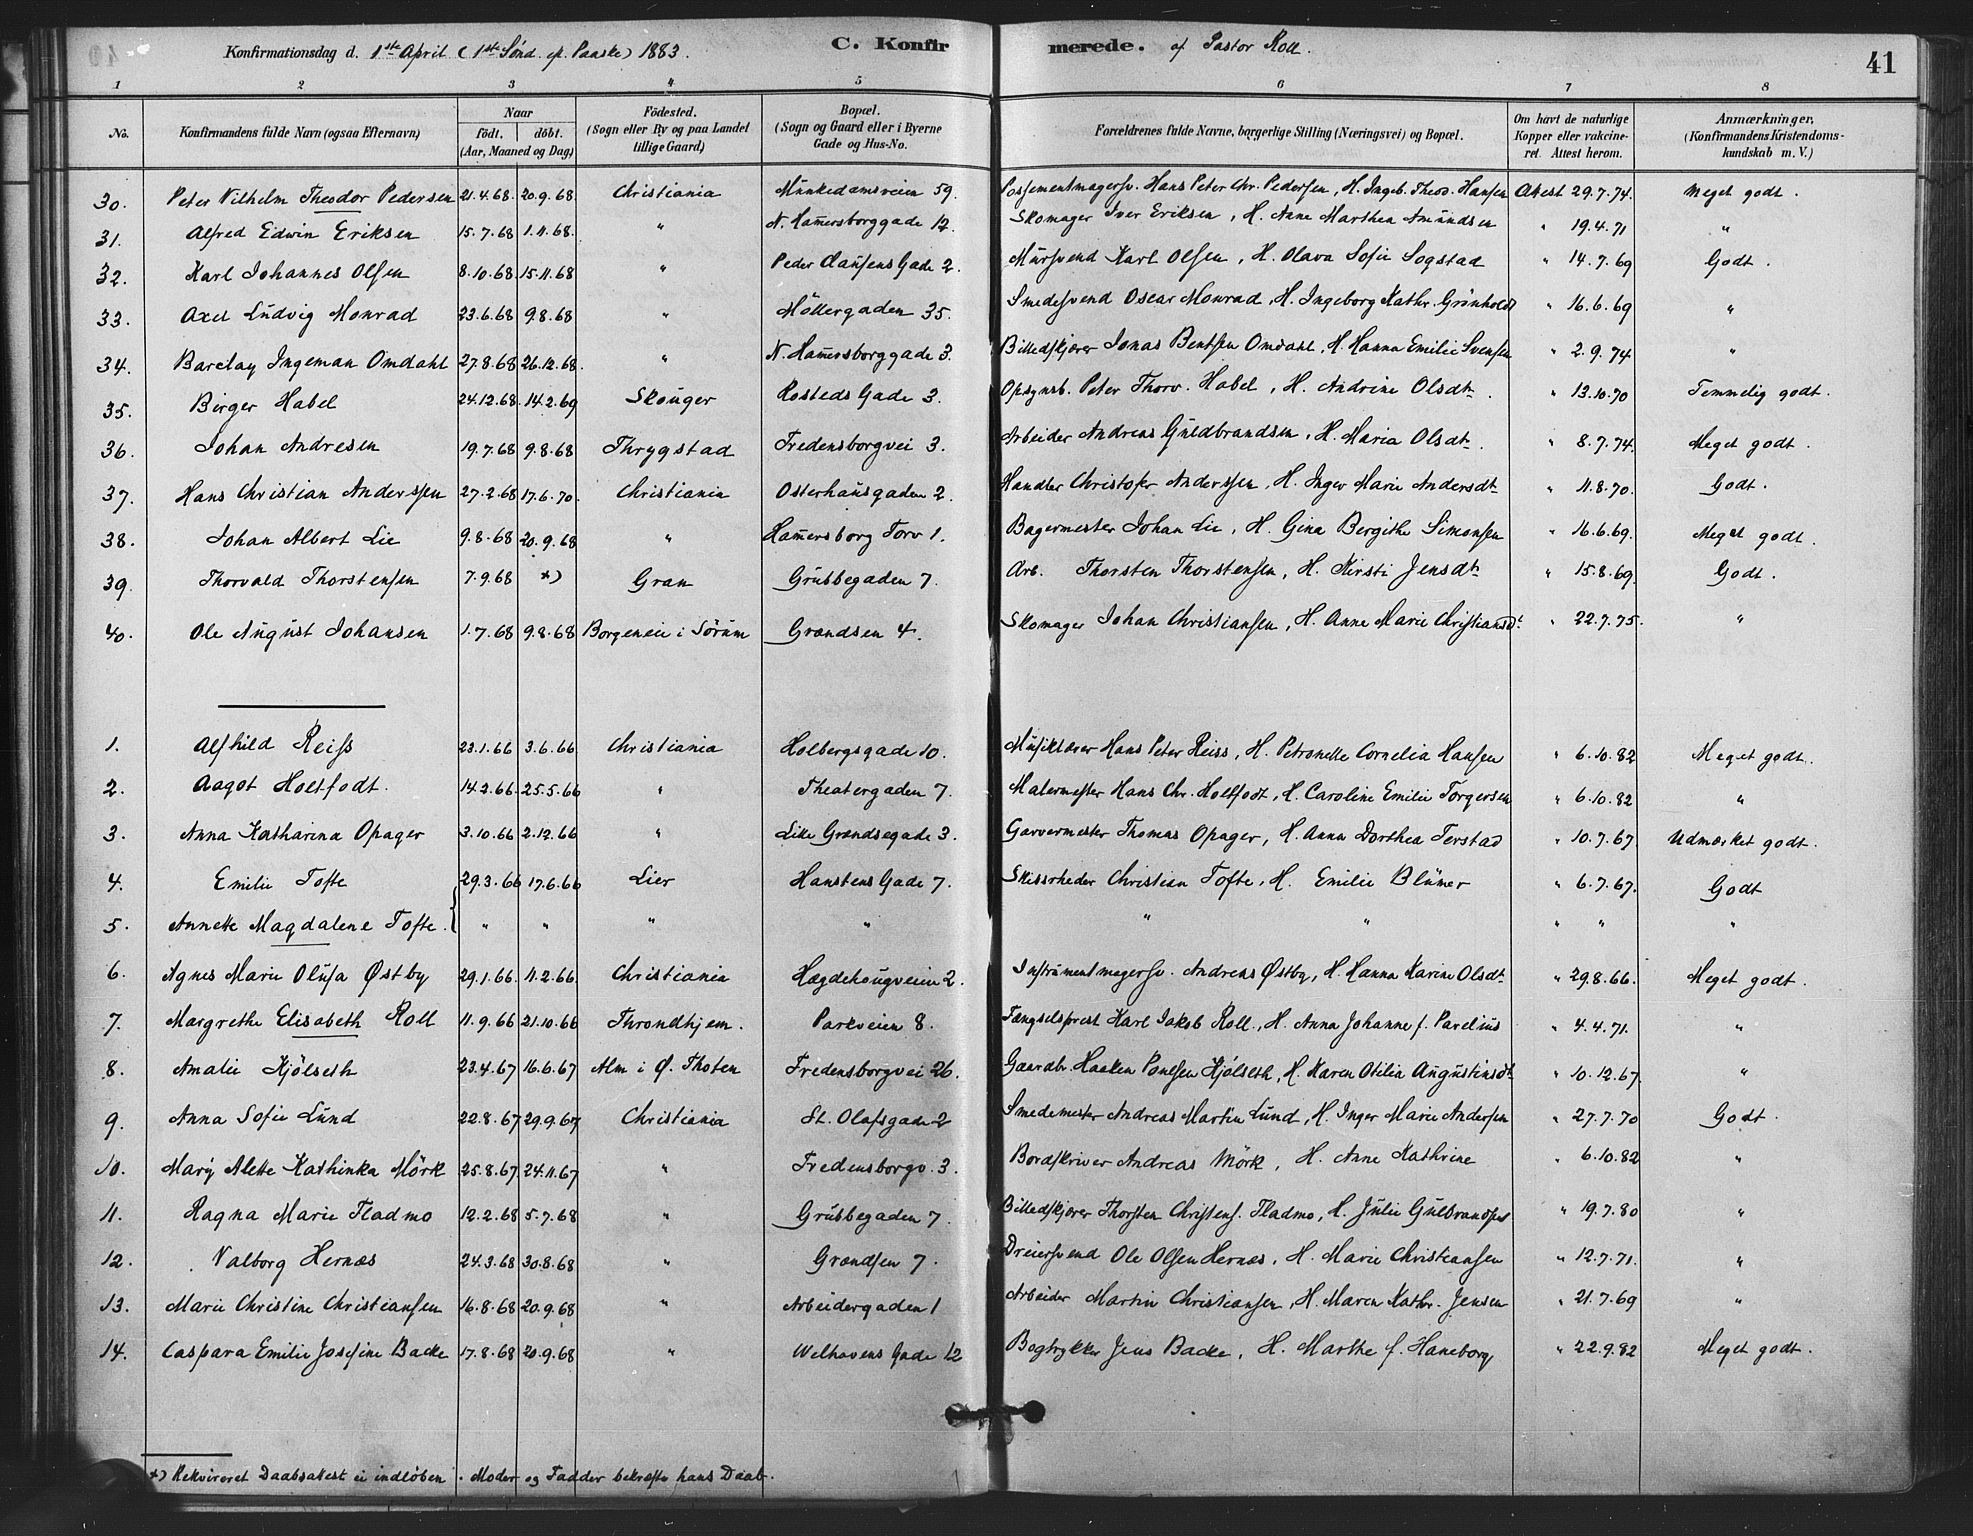 Konfirmationsdag d. 1st April (1st Sönd. ep. Paaske) 1883. C. Konfirmerede. af Pastor Roll. 41
1 2 3 4 5 6 7 8
No. Konfirmandens fulde Navn (ogsaa Efternavn) Naar födt. döbt. (Aar, Maaned og Dag) Födested. (Sogn eller By og paa Landet tillige Gaard) Bopæl. (Sogn og Gaard eller i Byerne Gade og Hus-No. Forældrenes fulde Navne, borgerlige Stilling (Næringsvei) og Bopæl. Om havt de naturlige Kopper eller vakcineret. Attest herom. Anmærkninger, (Konfirmandens Kristendomskundskab m. V.)
30. Peter Vilhelm Theodor Pedersen 21.4.68. 20.9.68 Christiania Munkedamsveien 59. Possementmagersv. Hans Peter Chr. Pedersen, H. Ingeb. Theod. Hansen Attest 29.7.74. Meget godt.
31. Alfred Edwin Eriksen 15.7.68 1.11.68. " N. Hamersborggade 12. Skomager Iver Eriksen, H. Anne Marthea Amundsen " 19.4.71 "
32. Karl Johannes Olsen 8.10.68 15.11.68 " Peder Clausens Gade 2. Mursvend Karl Olsen, H. Olava Sofie Sogstad " 14.7.69 Godt.
33. Axel Ludvig Monrad 23.6.68 9.8.68 " Möllergaden 35. Smedesvend Oscar Monrad, H. Ingeborg Kathr. Grönholdt " 16.6.69 "
34. Barclay Ingeman Omdahl 27.8.68 26.12.68. " N. Hamersborggade 3. Billedskjærer Jonas Bentsen Omdahl, H. Hanna Emilie Svensen " 2.9.74 "
35. Birger Habel 24.12.68. 14.2.69 Skouger Rosteds Gade 3. Opsynsb. Peter Thorv. Habel, H. Andrine Olsdt. " 13.10.70 Temmelig godt.
36. Johan Andresen 19.7.68 9.8.68 Thrygstad Fredensborgvei 3. Arbeider Andreas Guldbrandsen, H. Maria Olsdt. " 8.7.74. Meget godt.
37. Hans Christian Anderssen 27.2.68 17.6.70. Christiania Osterhausgaden 2. Handler Christofer Anderssen, H. Inger Marie Andersdt " 11.8.70. Godt.
38. Johan Albert Lie 9.8.68 20.9.68 " Hamersborg Torv 1. Bagermester Johan Lie, H. Gina Bergithe Simonsen " 16.6.69. Meget godt.
39. Thorvald Thorstensen 7.9.68 *) Gran Grubbegaden 7. Arb. Thorsten Thorstensen, H. Kirsti Jensdt " 15.8.69. Godt.
40. Ole August Johansen 1.7.68 9.8.68 Borgeneie i Sörum Grændsen 4. Skomager Johan Christiansen, H. Anne Marie Christiansdt. " 22.7.75. "
1. Alfhild Reiss 23.1.66 3.6.66 Christiania Holbergsgade 10. Musiklærer Hans Peter Reiss, H. Petronelle Cornelia Hansen " 6.10.82 Meget godt.
2. Aagot Holtfodt. 14.2.66. 25.5.66 " Theatergaden 7. Malermester Hans Chr. Holtfodt, H. Caroline Emilie Torgersen " 6.10.82 "
3. Anna Katharina Opager 3.10.66 2.12.66 " Lille Grændsegade 3. Garvermester Thomas Opager, H. Anna Dorthea Terstad " 10.7.67 Udmærket godt.
4. Emilie Tofte 29.3.66 17.6.66 Lier Hanstens Gade 7. Skibsrheder Christian Tofte, H. Emilie Blumer " 6.7.67. Godt
5. Annette Magdalene Tofte. " " " " " " " " "
6. Agnes Marie Olufa Østby 29.1.66 11.2.66 Christiania Hægdehougveien 2. Instrumentmagersv. Andreas Østby, H. Hanna Karine Olsdt " 29.8.66. Meget godt.
7. Margrethe Elisabeth Roll 11.9.66 21.10.66 Throndhjem. Parkveien 8. Fængselsprest Karl Jakob Roll, H. Anna Johanne f. Parelius " 4.4.71. "
8. Amalie Kjölseth 23.4.67 16.6.67 Alm i Ø. Thoten Fredensborgvei 26. Gaardbr. Haaken Poulsen Kjölseth, H. Karen Otilia Augustinsdt " 10.12.67. "
9. Anna Sofie Lund 22.8.67 29.9.67 Christiania St. Olafsgade 2 Smedemester Andreas Martin Lund, H. Inger Marie Andersen " 27.7.70 Godt.
10. Mary Alette Kathinka Mörk 25.8.67 24.11.67 " Fredensborgv. 3. Bordskriver Andreas Mörk, H. Anne Kathrine " 6.10.82 "
11. Ragna Marie Fladmo 12.2.68 5.7.68 " Grubbegaden 7. Billedskjærer Thorsten Christens. Fladmo, H. Julie Gulbrandsen " 19.7.80 "
12. Valborg Hernæs 24.3.68 30.8.68 " Grændsen 7. Dreiersvend Ole Olsen Hernæs, H. Marie Christiansen " 12.7.71. "
13. Marie Christine Christiansen 16.8.68 20.9.68 " Arbeidergaden 1 Arbeider Martin Christiansen, H. Maren Kathr. Jensen " 21.7.69 "
14. Caspara Emilie Josefine Backe 17.8.68 20.9.68 " Welhavens Gade 12 Bogtrykker Jens Backe, H. Marthe f. Haneborg " 22.9.82 Meget godt.
*) Rekvireret Daabsattest ei indlöben. Moder og Fadder bekræfte hans Daab.